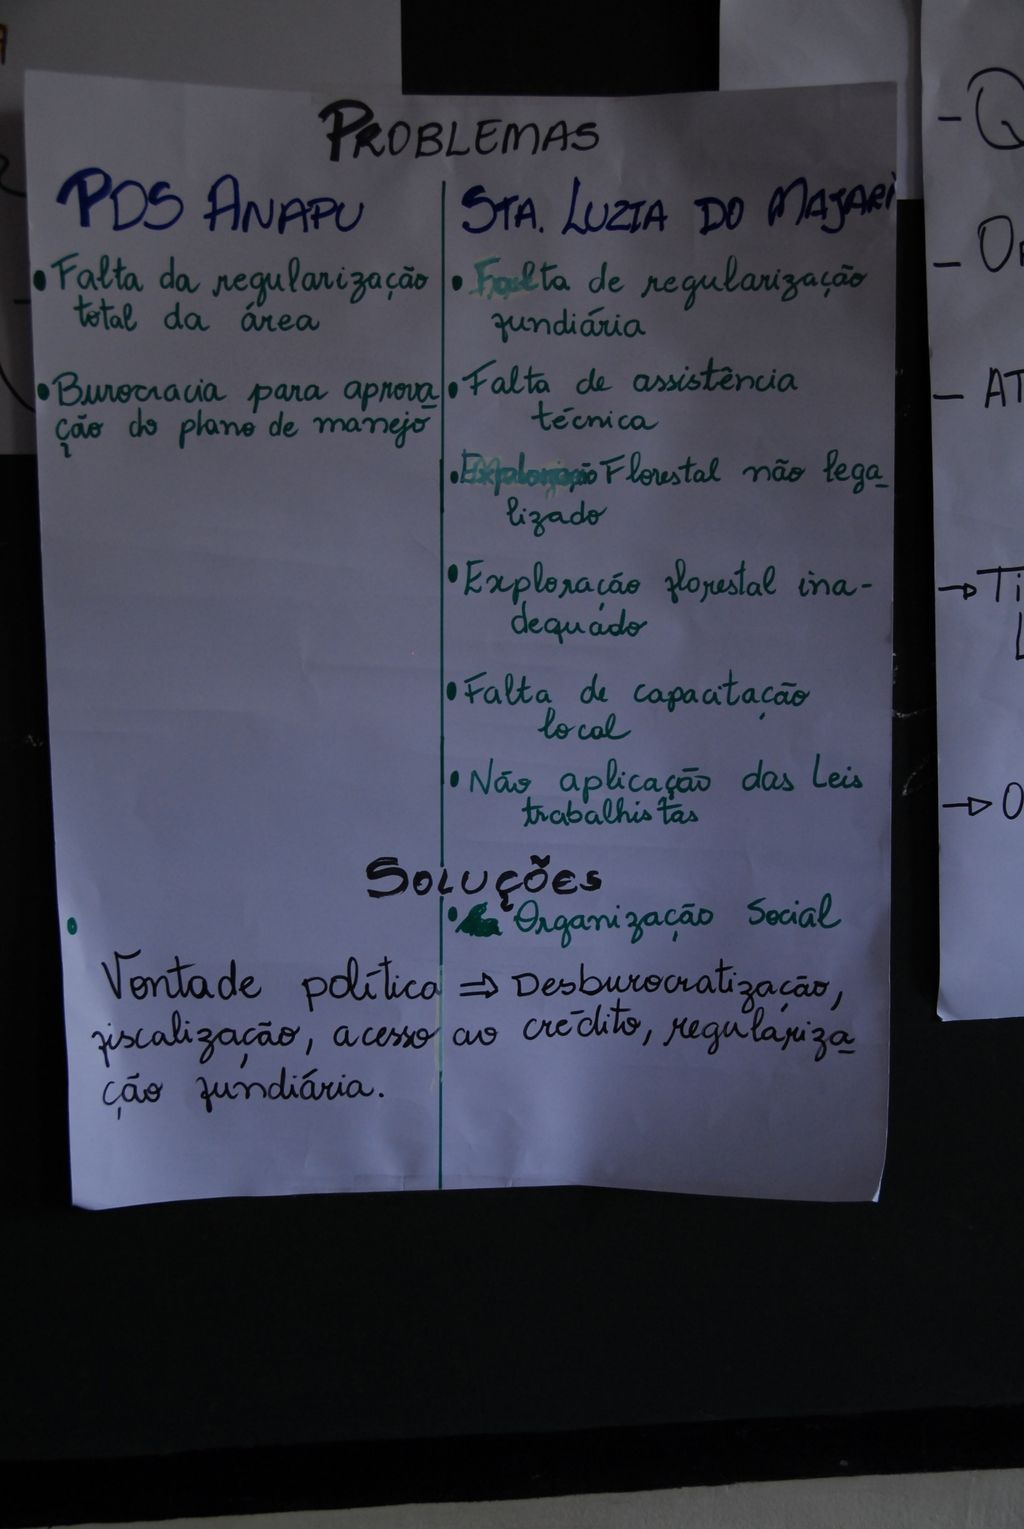 PROBLEMAS
PDS ANAPU
• Falta da regularização
total da área
• Burocracia para aprova
ção do plano de manejo
STA. LUZIA DO MAJARI
• Falta de regularização
fundiária
• Falta de assistência
técnica
• Exploração Florestal não lega
lizado
• Exploração florestal ina-
dequado
• Falta de capacitação
local
• Não aplicação das Leis
trabalhistas
SOLUÇÕES
• Organização Social
Vontade política ⇒ Desburocratização,
fiscalização, acesso ao crédito, regulariza
ção fundiária.